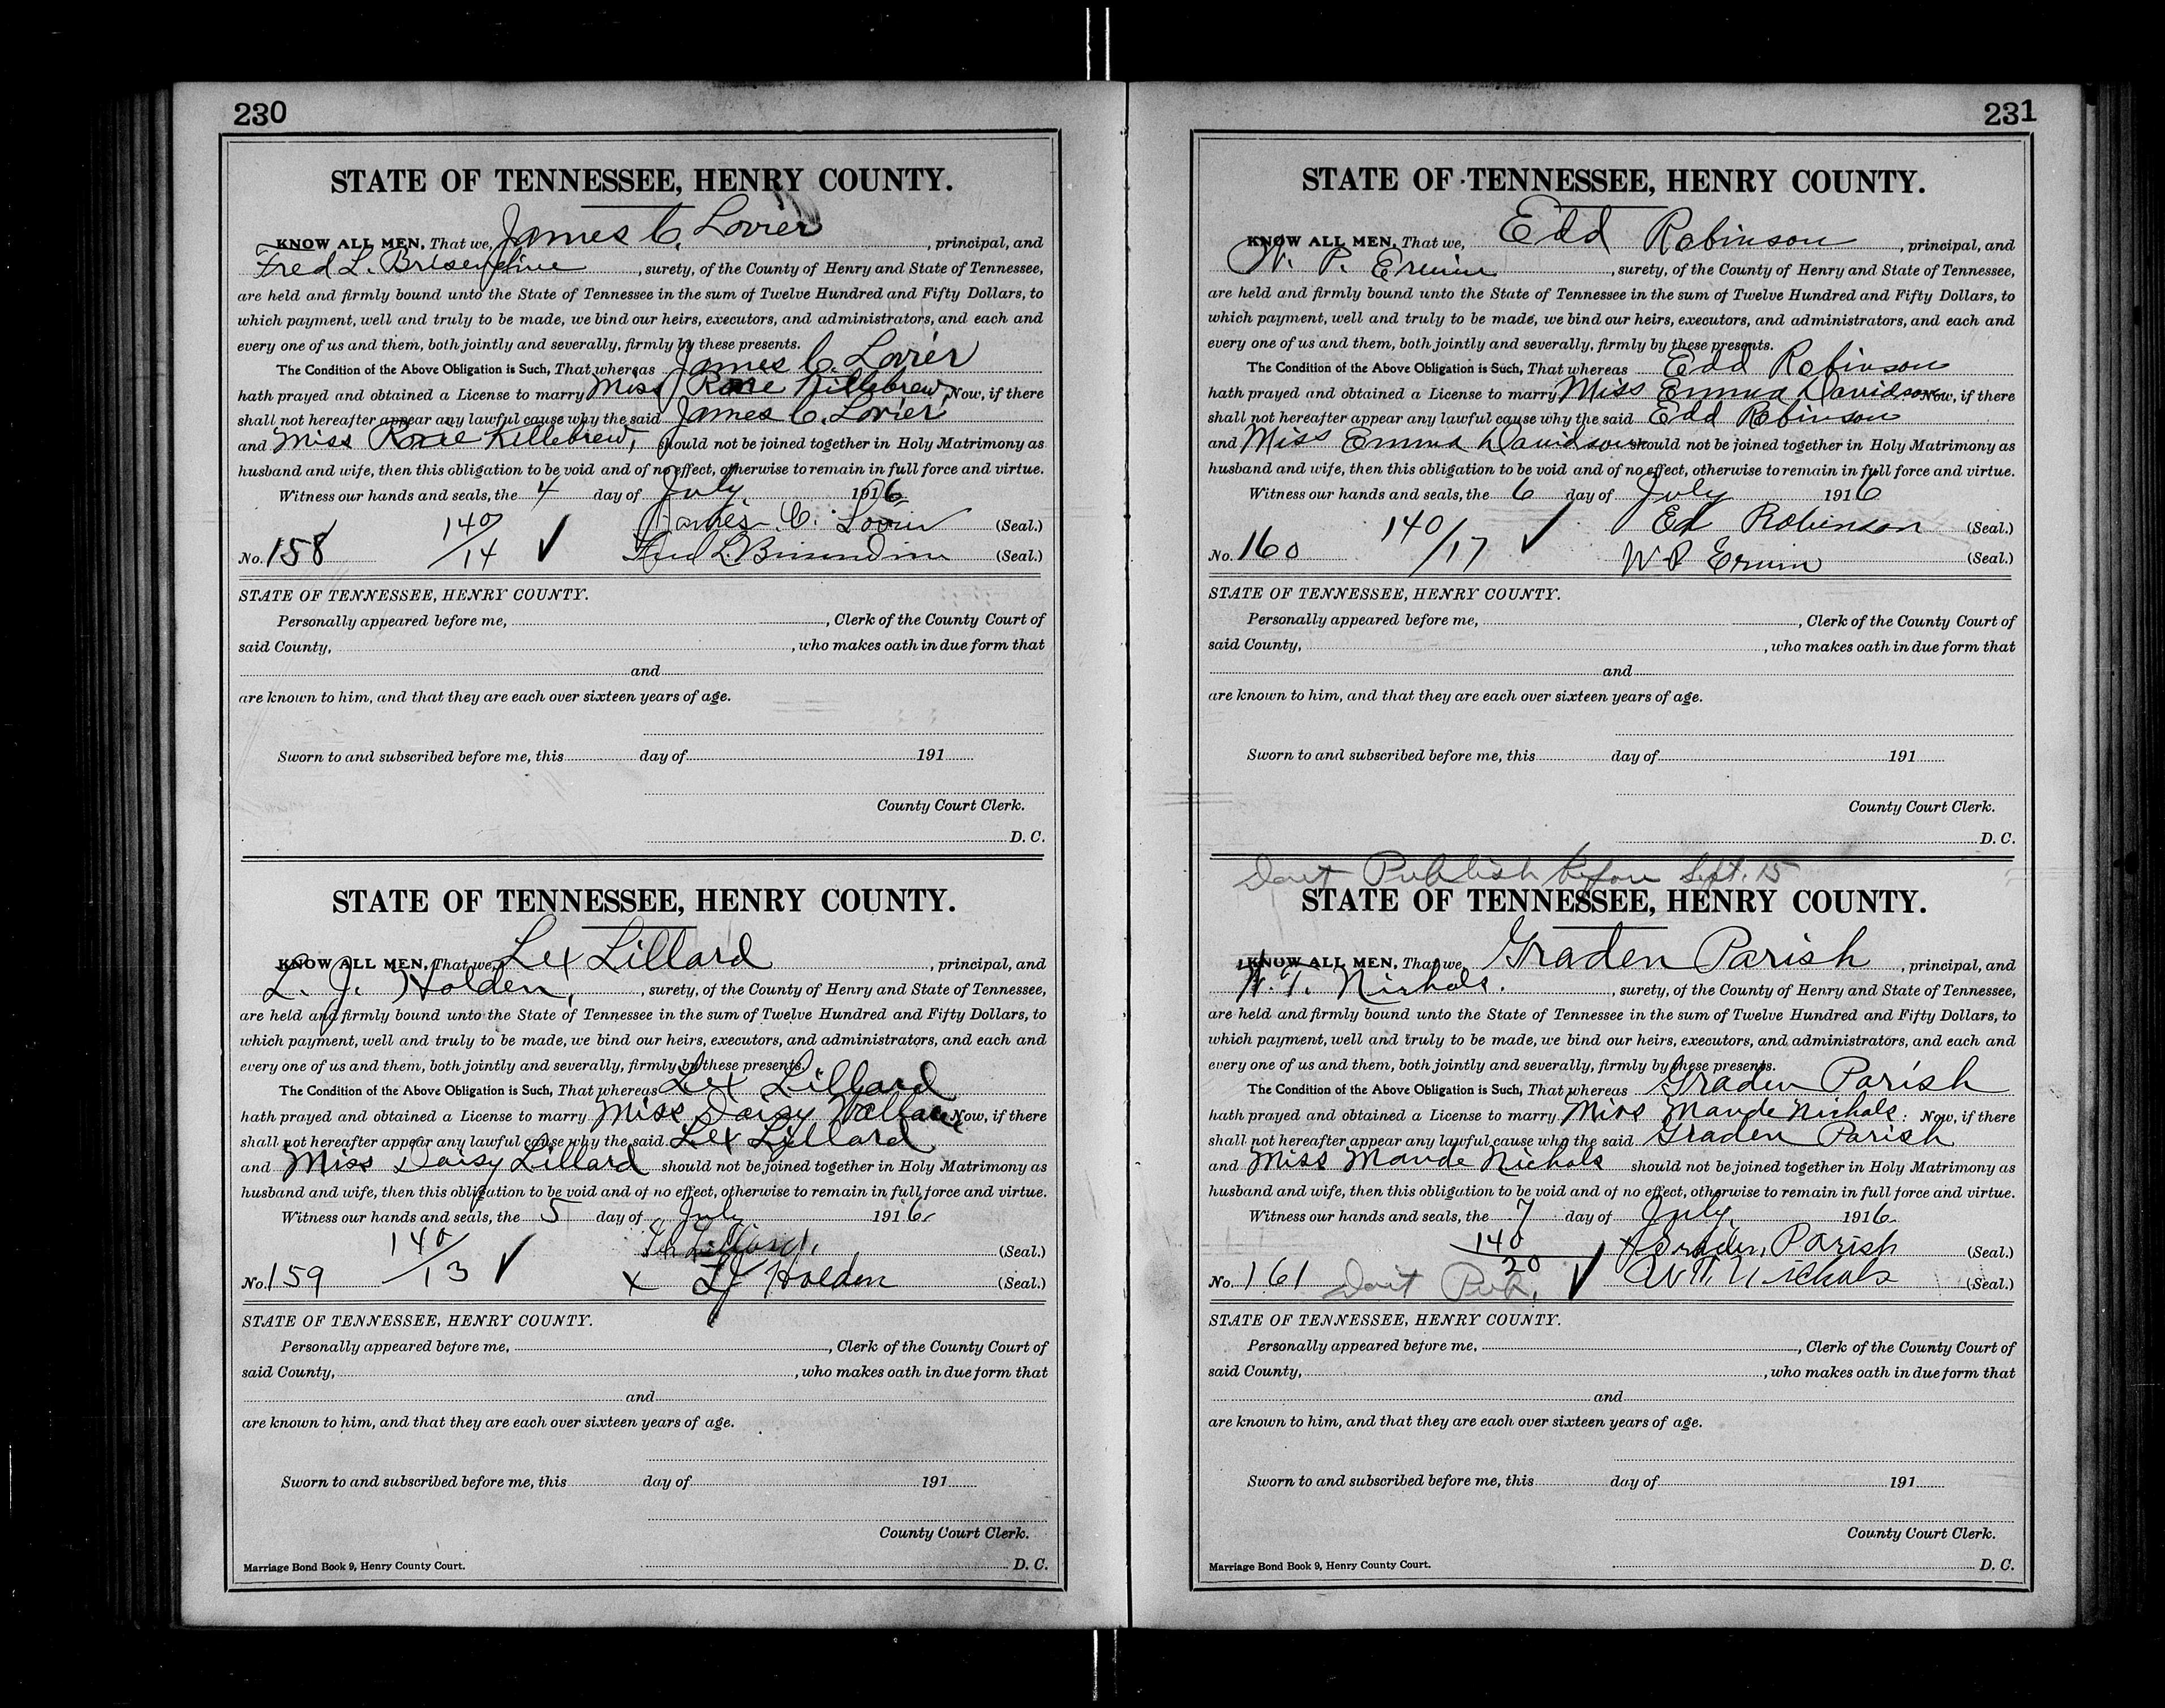 230
STATE OF TENNESSEE, HENRY COUNTY.
KNOW ALL MEN, That we, James C. Lovier, principal, and
Fred L. , surety, of the County of Henry and State of Tennessee,
are held and firmly bound unto the State of Tennessee in the sum of Twelve Hundred and Fifty Dollars, to
which payment, well and truly to be made, we bind our heirs, executors, and administrators, and each and
every one of us and them, both jointly and severally, firmly by these presents.
The Condition of the Above Obligation is Such, That whereas James C. Lovier
hath prayed and obtained a License to marry Miss Killebrew, Now, if there
shall not hereafter appear any lawful cause why the said James C. Lovier
and Miss Killebrew, should not be joined together in Holy Matrimony as
husband and wife, then this obligation to be void and of no effect, otherwise to remain in full force and virtue.
Witness our hands and seals, the 4 day of July, 1916
James C. Lovier (Seal.)
No. 158 140/14 ✓ Fred L. (Seal.)
STATE OF TENNESSEE, HENRY COUNTY.
Personally appeared before me, , Clerk of the County Court of
said County, , who makes oath in due form that
and
are known to him, and that they are each over sixteen years of age.
Sworn to and subscribed before me, this day of 191
County Court Clerk.
D. C.
STATE OF TENNESSEE, HENRY COUNTY.
KNOW ALL MEN, That we, Lex Lillard, principal, and
L. J. Holden, , surety, of the County of Henry and State of Tennessee,
are held and firmly bound unto the State of Tennessee in the sum of Twelve Hundred and Fifty Dollars, to
which payment, well and truly to be made, we bind our heirs, executors, and administrators, and each and
every one of us and them, both jointly and severally, firmly by these presents.
The Condition of the Above Obligation is Such, That whereas Lex Lillard
hath prayed and obtained a License to marry Miss Daisy Wallace Now, if there
shall not hereafter appear any lawful cause why the said Lex Lillard
and Miss Daisy Lillard should not be joined together in Holy Matrimony as
husband and wife, then this obligation to be void and of no effect, otherwise to remain in full force and virtue.
Witness our hands and seals, the 5 day of July 1916
Lex Lillard, (Seal.)
No. 159 140/13 ✓ x L J Holden (Seal.)
STATE OF TENNESSEE, HENRY COUNTY.
Personally appeared before me, , Clerk of the County Court of
said County, , who makes oath in due form that
and
are known to him, and that they are each over sixteen years of age.
Sworn to and subscribed before me, this day of 191
County Court Clerk.
Marriage Bond Book 9, Henry County Court. D. C.
231
STATE OF TENNESSEE, HENRY COUNTY.
KNOW ALL MEN, That we, Edd Robinson, principal, and
W. P. Erwin , surety, of the County of Henry and State of Tennessee,
are held and firmly bound unto the State of Tennessee in the sum of Twelve Hundred and Fifty Dollars, to
which payment, well and truly to be made, we bind our heirs, executors, and administrators, and each and
every one of us and them, both jointly and severally, firmly by these presents.
The Condition of the Above Obligation is Such, That whereas Edd Robinson
hath prayed and obtained a License to marry Miss Emma Davidson Now, if there
shall not hereafter appear any lawful cause why the said Edd Robinson
and Miss Emma Davidson should not be joined together in Holy Matrimony as
husband and wife, then this obligation to be void and of no effect, otherwise to remain in full force and virtue.
Witness our hands and seals, the 6 day of July 1916
Ed Robinson (Seal.)
No. 160 140/17 ✓ W P Erwin (Seal.)
STATE OF TENNESSEE, HENRY COUNTY.
Personally appeared before me, , Clerk of the County Court of
said County, , who makes oath in due form that
and
are known to him, and that they are each over sixteen years of age.
Sworn to and subscribed before me, this day of 191
County Court Clerk.
D. C.
Dont Publish before Sept. 15
STATE OF TENNESSEE, HENRY COUNTY.
KNOW ALL MEN, That we, Graden Parish, principal, and
W. T. Nichols. , surety, of the County of Henry and State of Tennessee,
are held and firmly bound unto the State of Tennessee in the sum of Twelve Hundred and Fifty Dollars, to
which payment, well and truly to be made, we bind our heirs, executors, and administrators, and each and
every one of us and them, both jointly and severally, firmly by these presents.
The Condition of the Above Obligation is Such, That whereas Graden Parish
hath prayed and obtained a License to marry Miss Maude Nichols. Now, if there
shall not hereafter appear any lawful cause why the said Graden Parish
and Miss Maude Nichols should not be joined together in Holy Matrimony as
husband and wife, then this obligation to be void and of no effect, otherwise to remain in full force and virtue.
Witness our hands and seals, the 7 day of July, 1916
x Graden Parish (Seal.)
No. 161 Dont Pub. 140/20 ✓ W. T. Nichols (Seal.)
STATE OF TENNESSEE, HENRY COUNTY.
Personally appeared before me, , Clerk of the County Court of
said County, , who makes oath in due form that
and
are known to him, and that they are each over sixteen years of age.
Sworn to and subscribed before me, this day of 191
County Court Clerk.
Marriage Bond Book 9, Henry County Court. D. C.